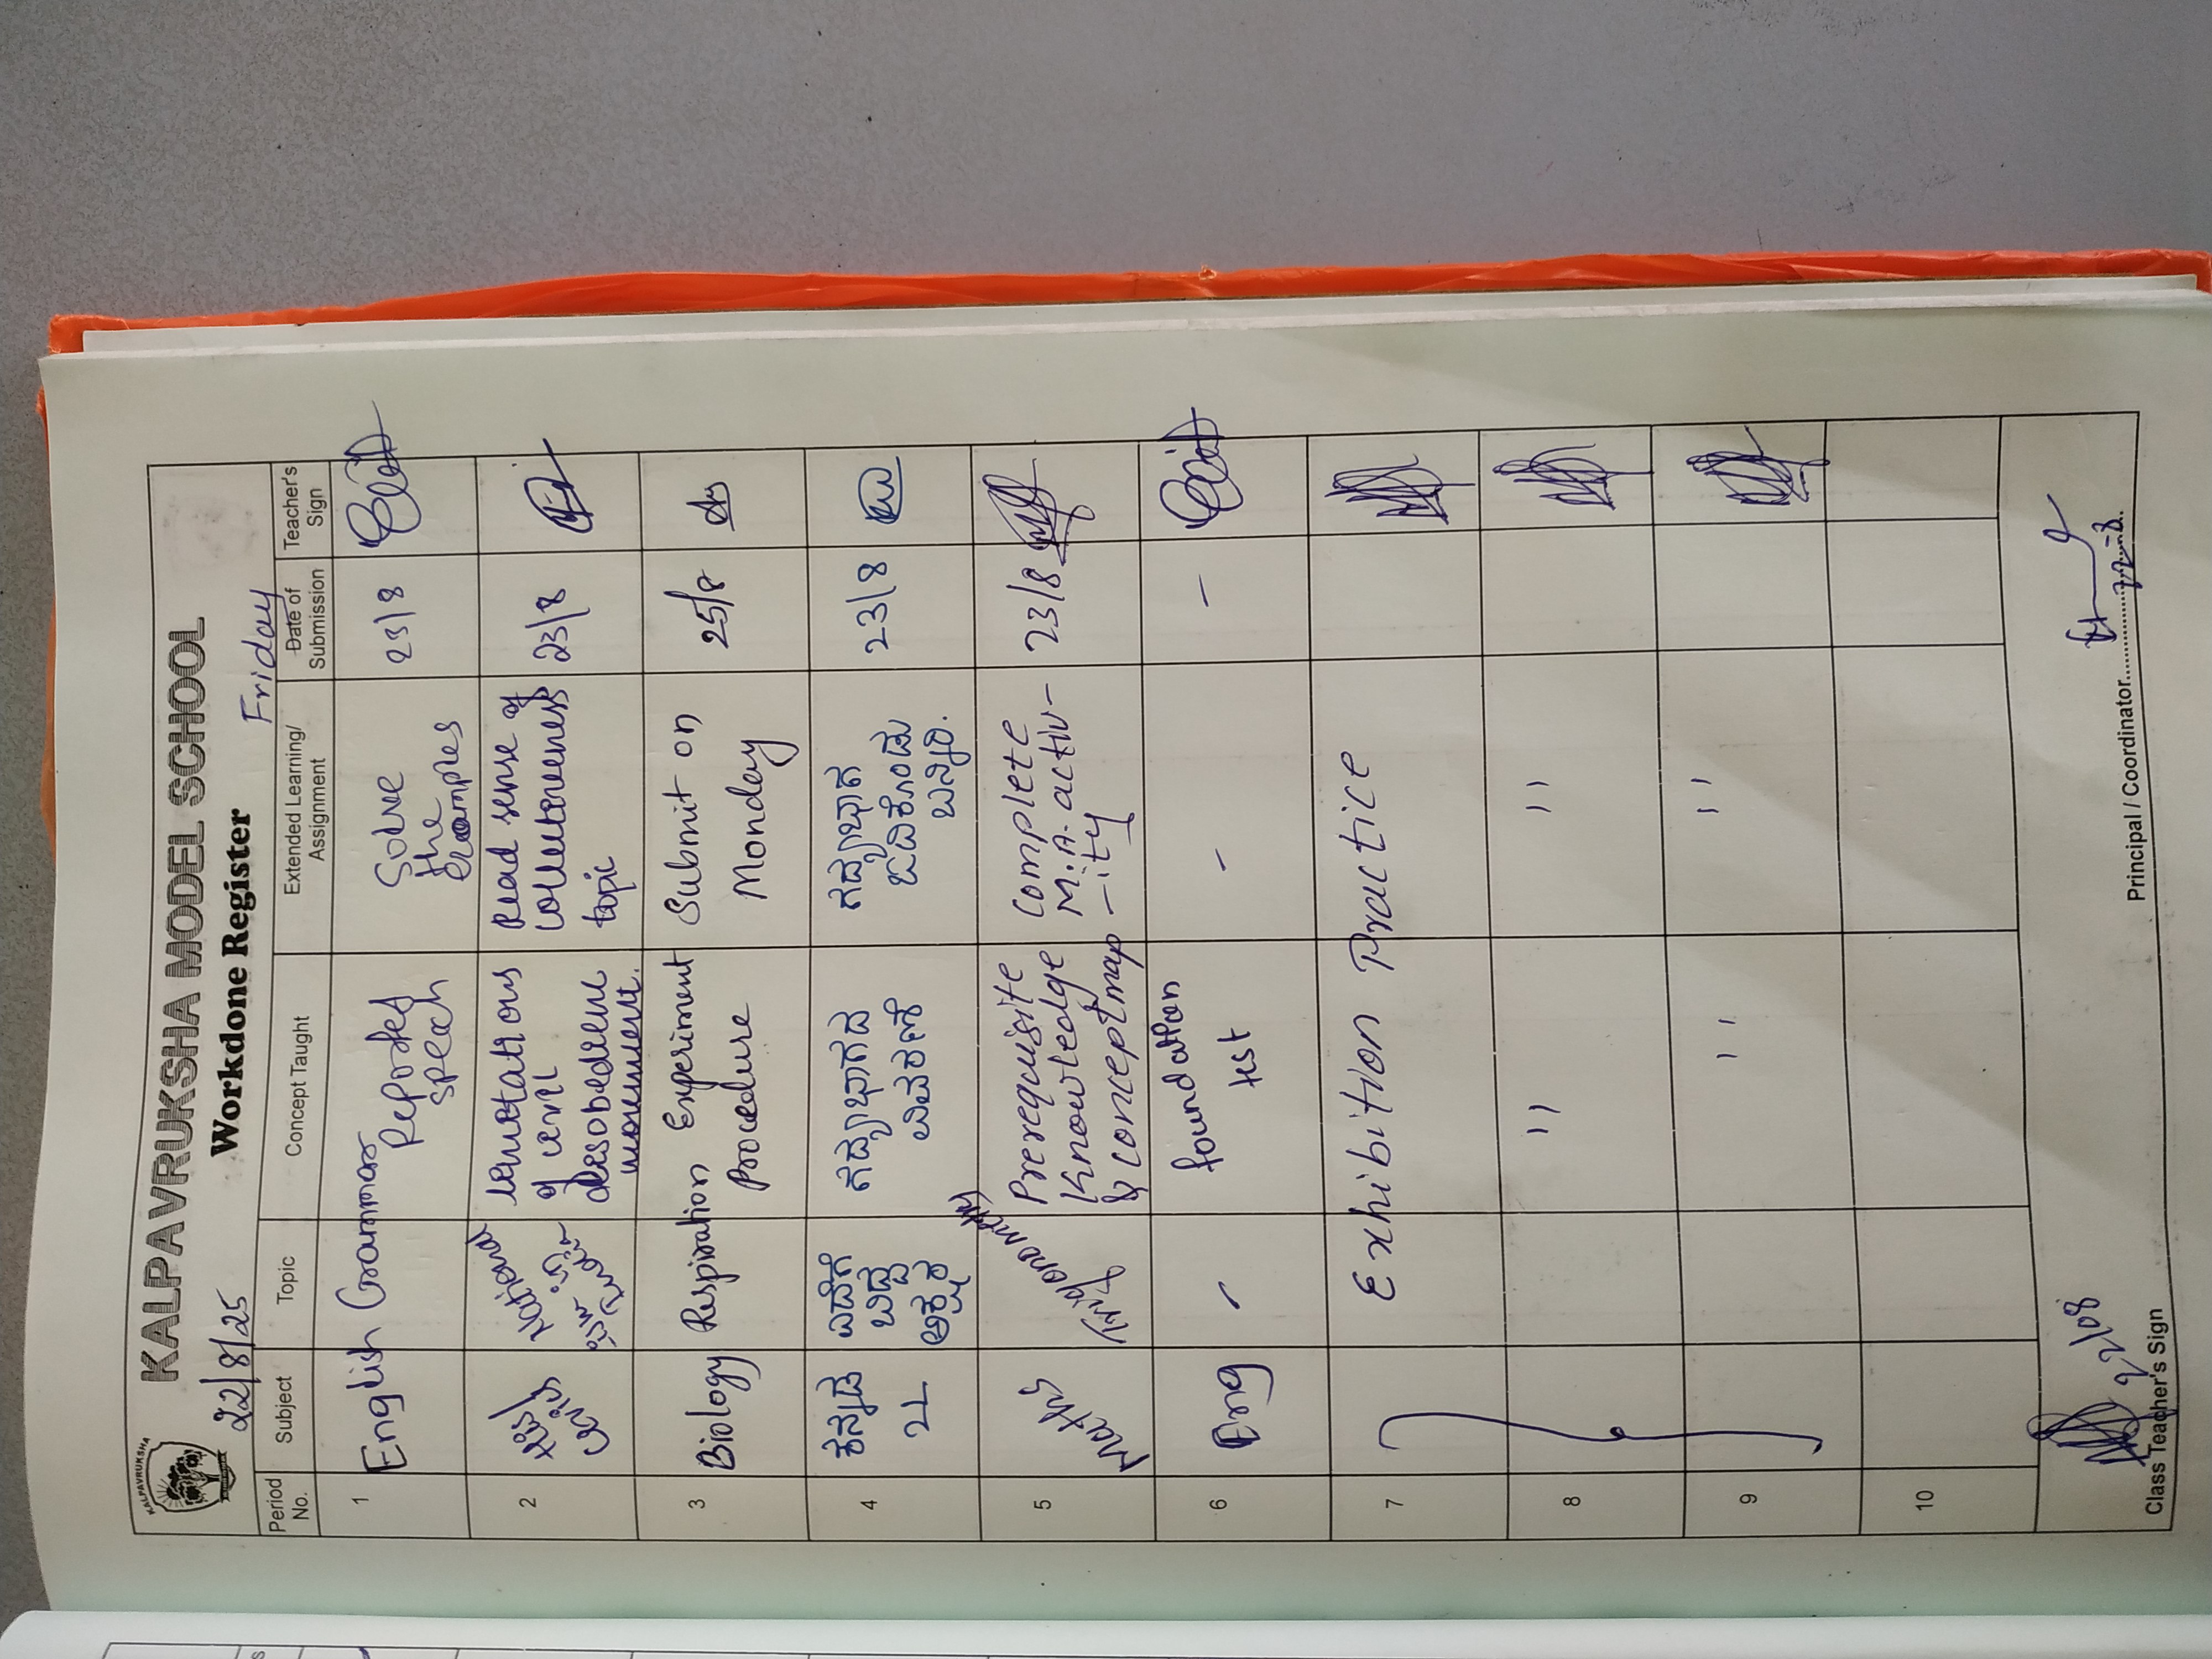 KALPAVRUKSHA
KALPAVRUKSHA MODEL SCHOOL
Workdone Register
22/8/25
Friday
Period No.
Subject
Topic
Concept Taught
Extended Learning/ Assignment
Date of Submission
Teacher's Sign
1
English
Grammar
Reported
speech
Solve
the
Examples
23/8
2
National
lemotations
of civil
desobedience
movement.
Read sense of
collectiveness
topic
23/8
3
Biology
Respiration
Experiment
Procedure
Submit on
Monday
25/8
4
ಕನ್ನಡ
2L
ಎದೆಗೆ
ಬಿದ್ದ
ಅಕ್ಷರ
ಗದ್ಯಭಾಗದ
ವಿವರಣೆ
ಗದ್ಯಭಾಗ
ಓದಿಕೊಂಡು
ಬನ್ನಿರಿ.
23/8
5
Maths
Trigonometry
Prerequisite
Knowledge
& conceptmap
Complete
M.A. activ-
-ity
23/8
6
Eng
-
foundation
test
-
-
7
Exhibition Practice
8
"
"
9
"
"
10
22/08
Class Teacher's Sign
Principal / Coordinator
22-8